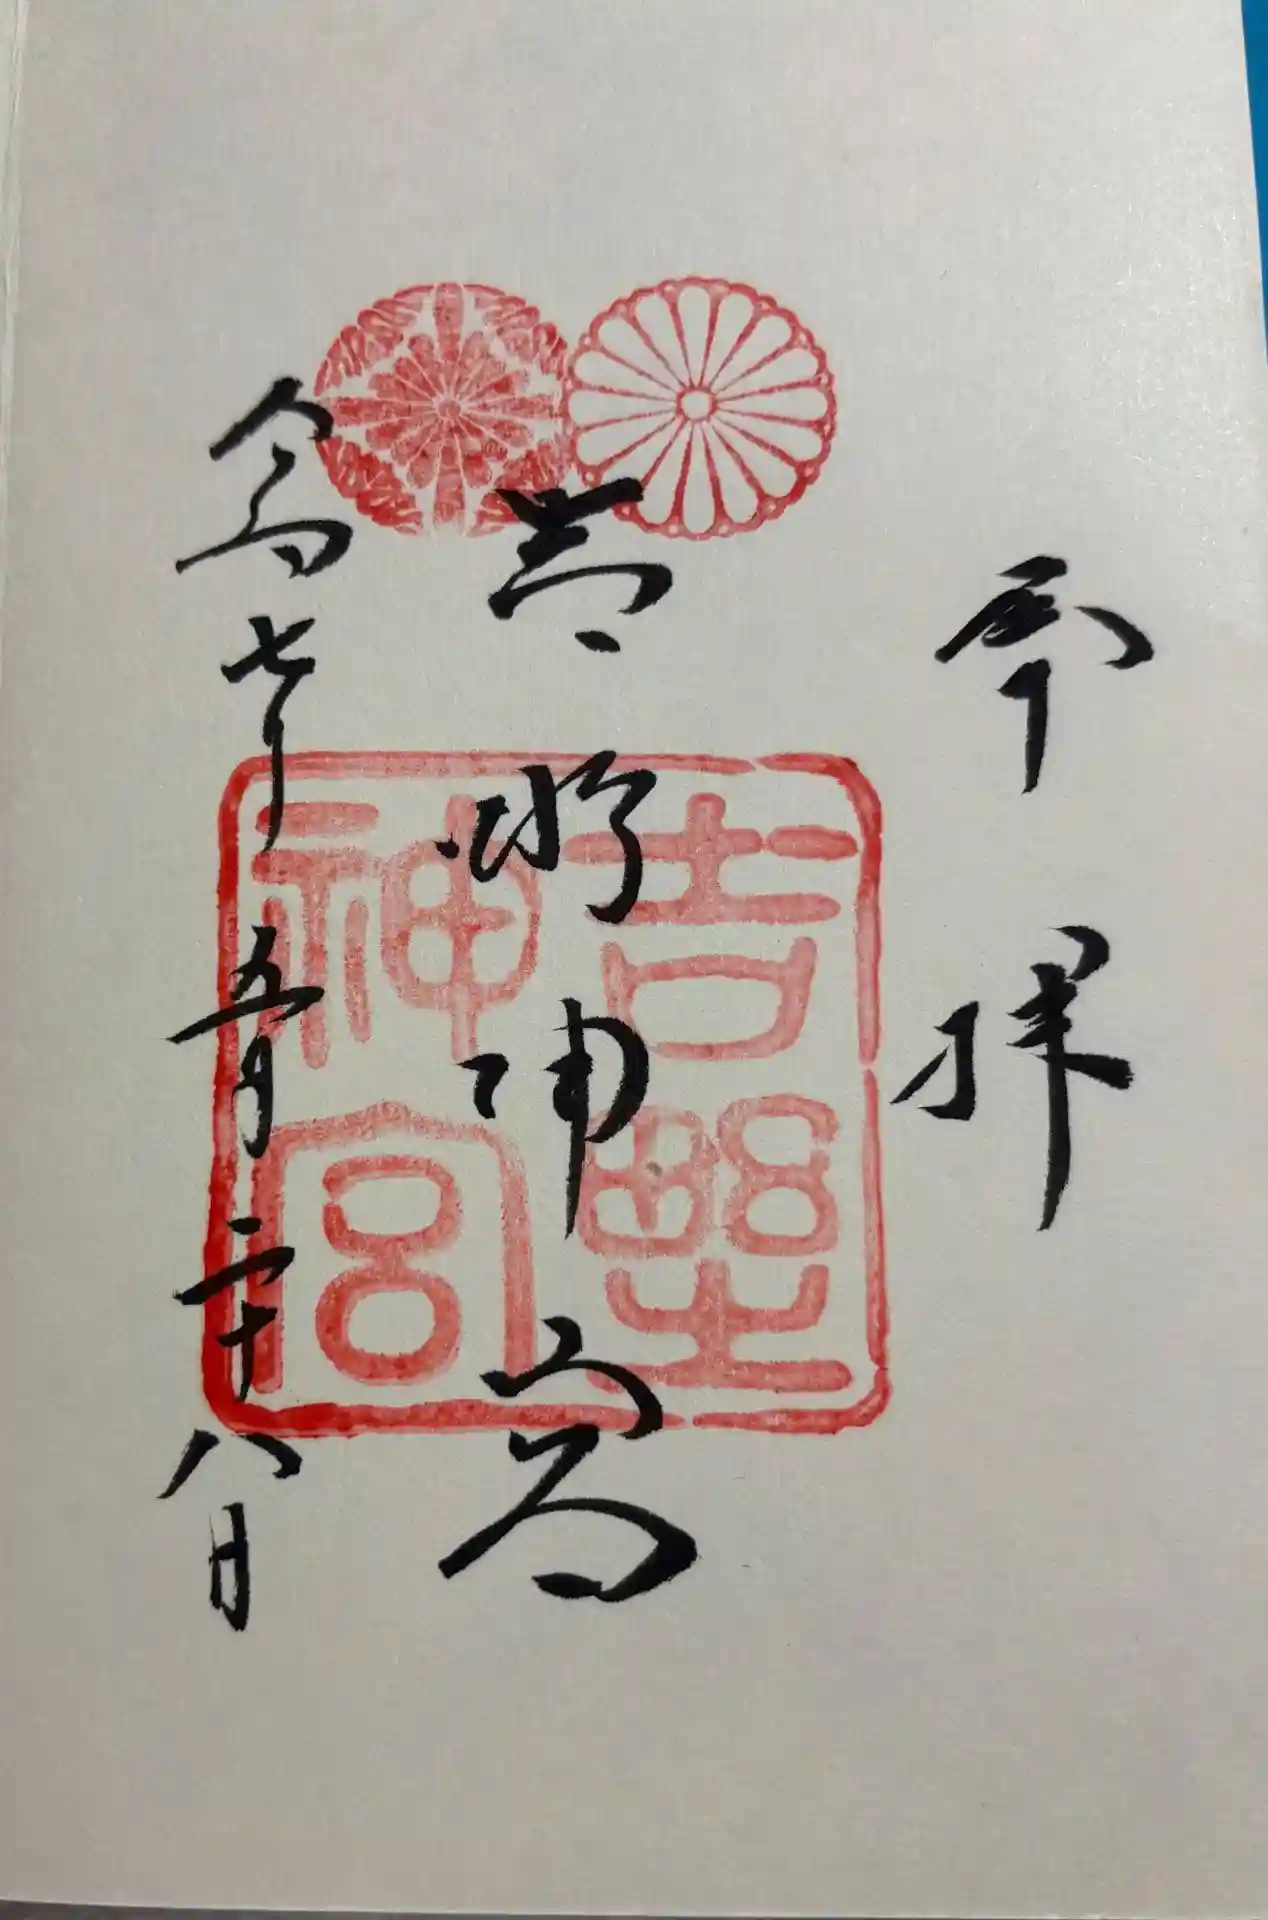 奉拝
吉野神宮
吉野
神宮
令和七年五月二十八日